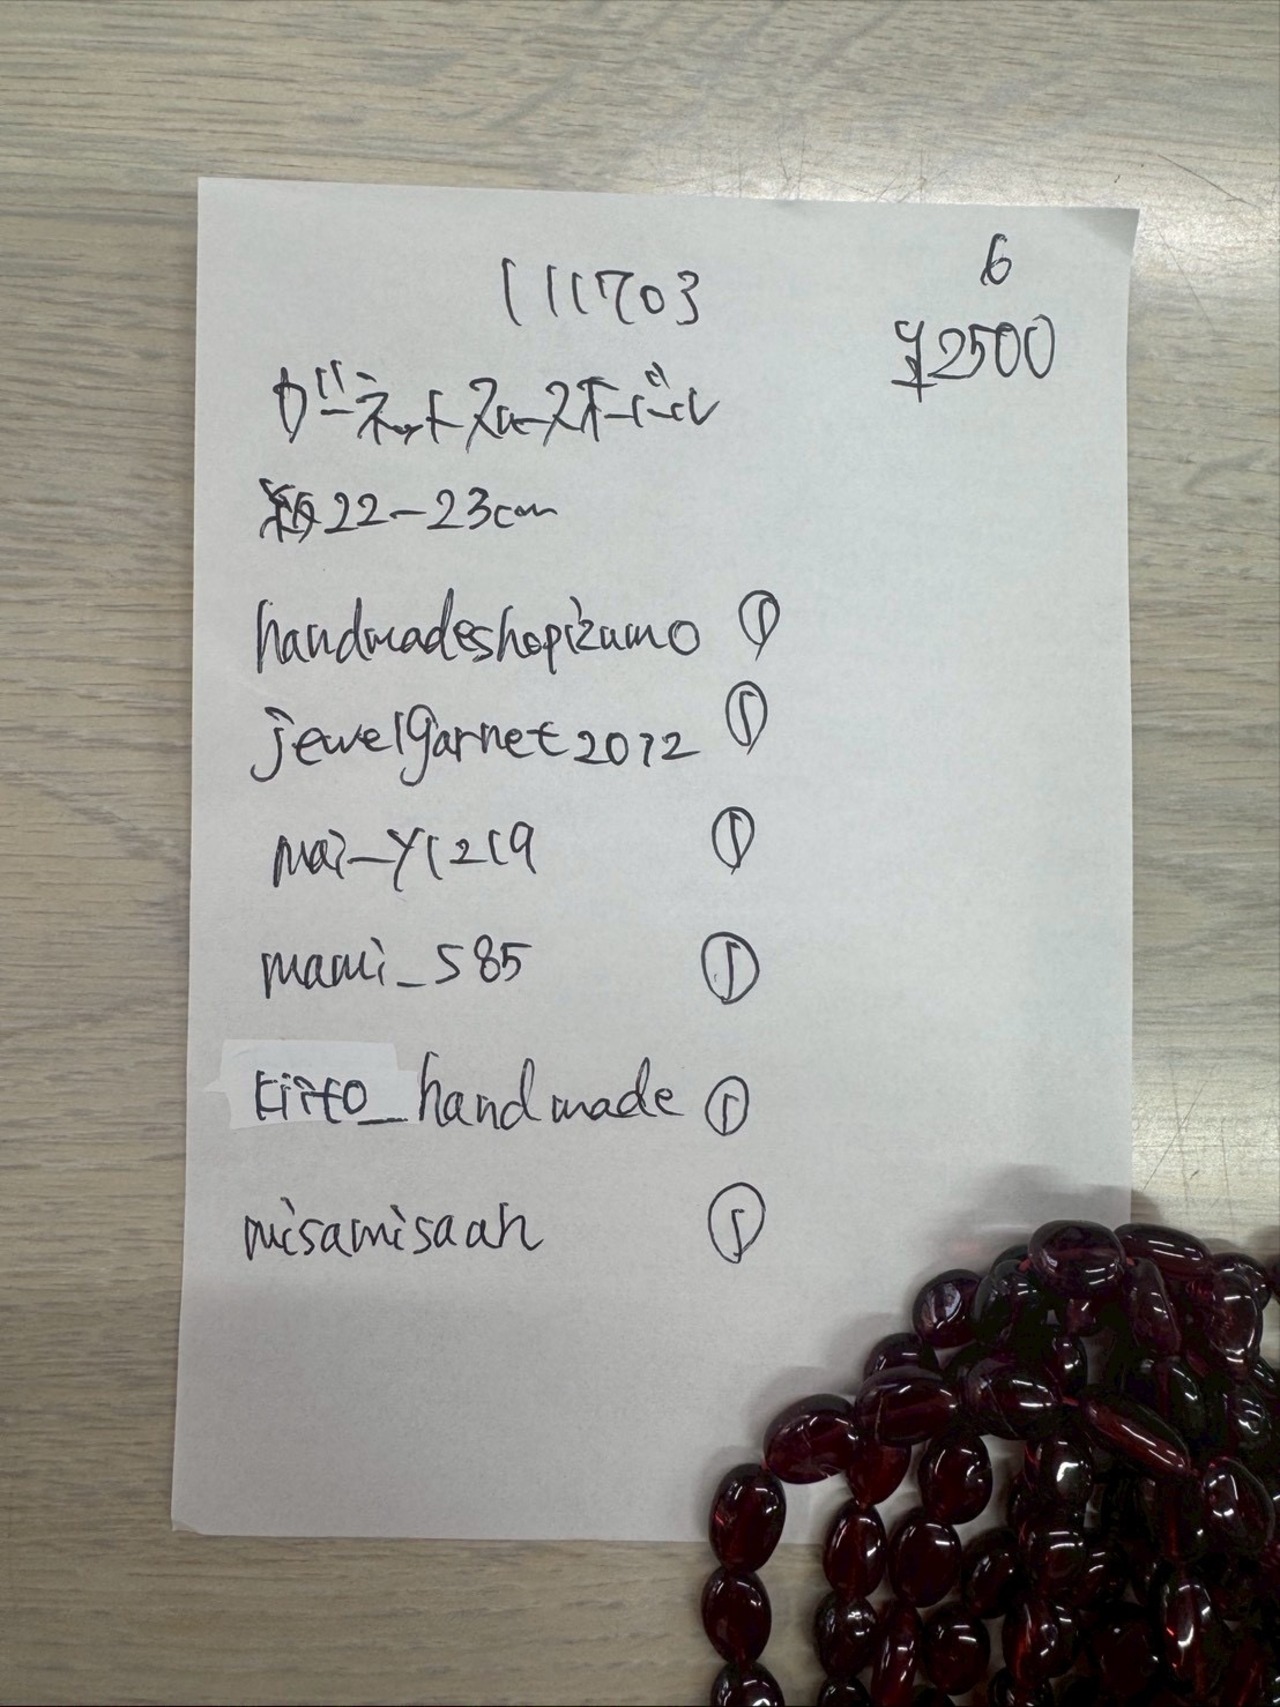 111703
6
¥2500
ガーネットスムースオーバル
約22-23cm
handmadeshopizumo ①
jewelgarnet2012 ①
mai_y1219 ①
mami_s85 ①
kiito_handmade ①
misamisaah ①